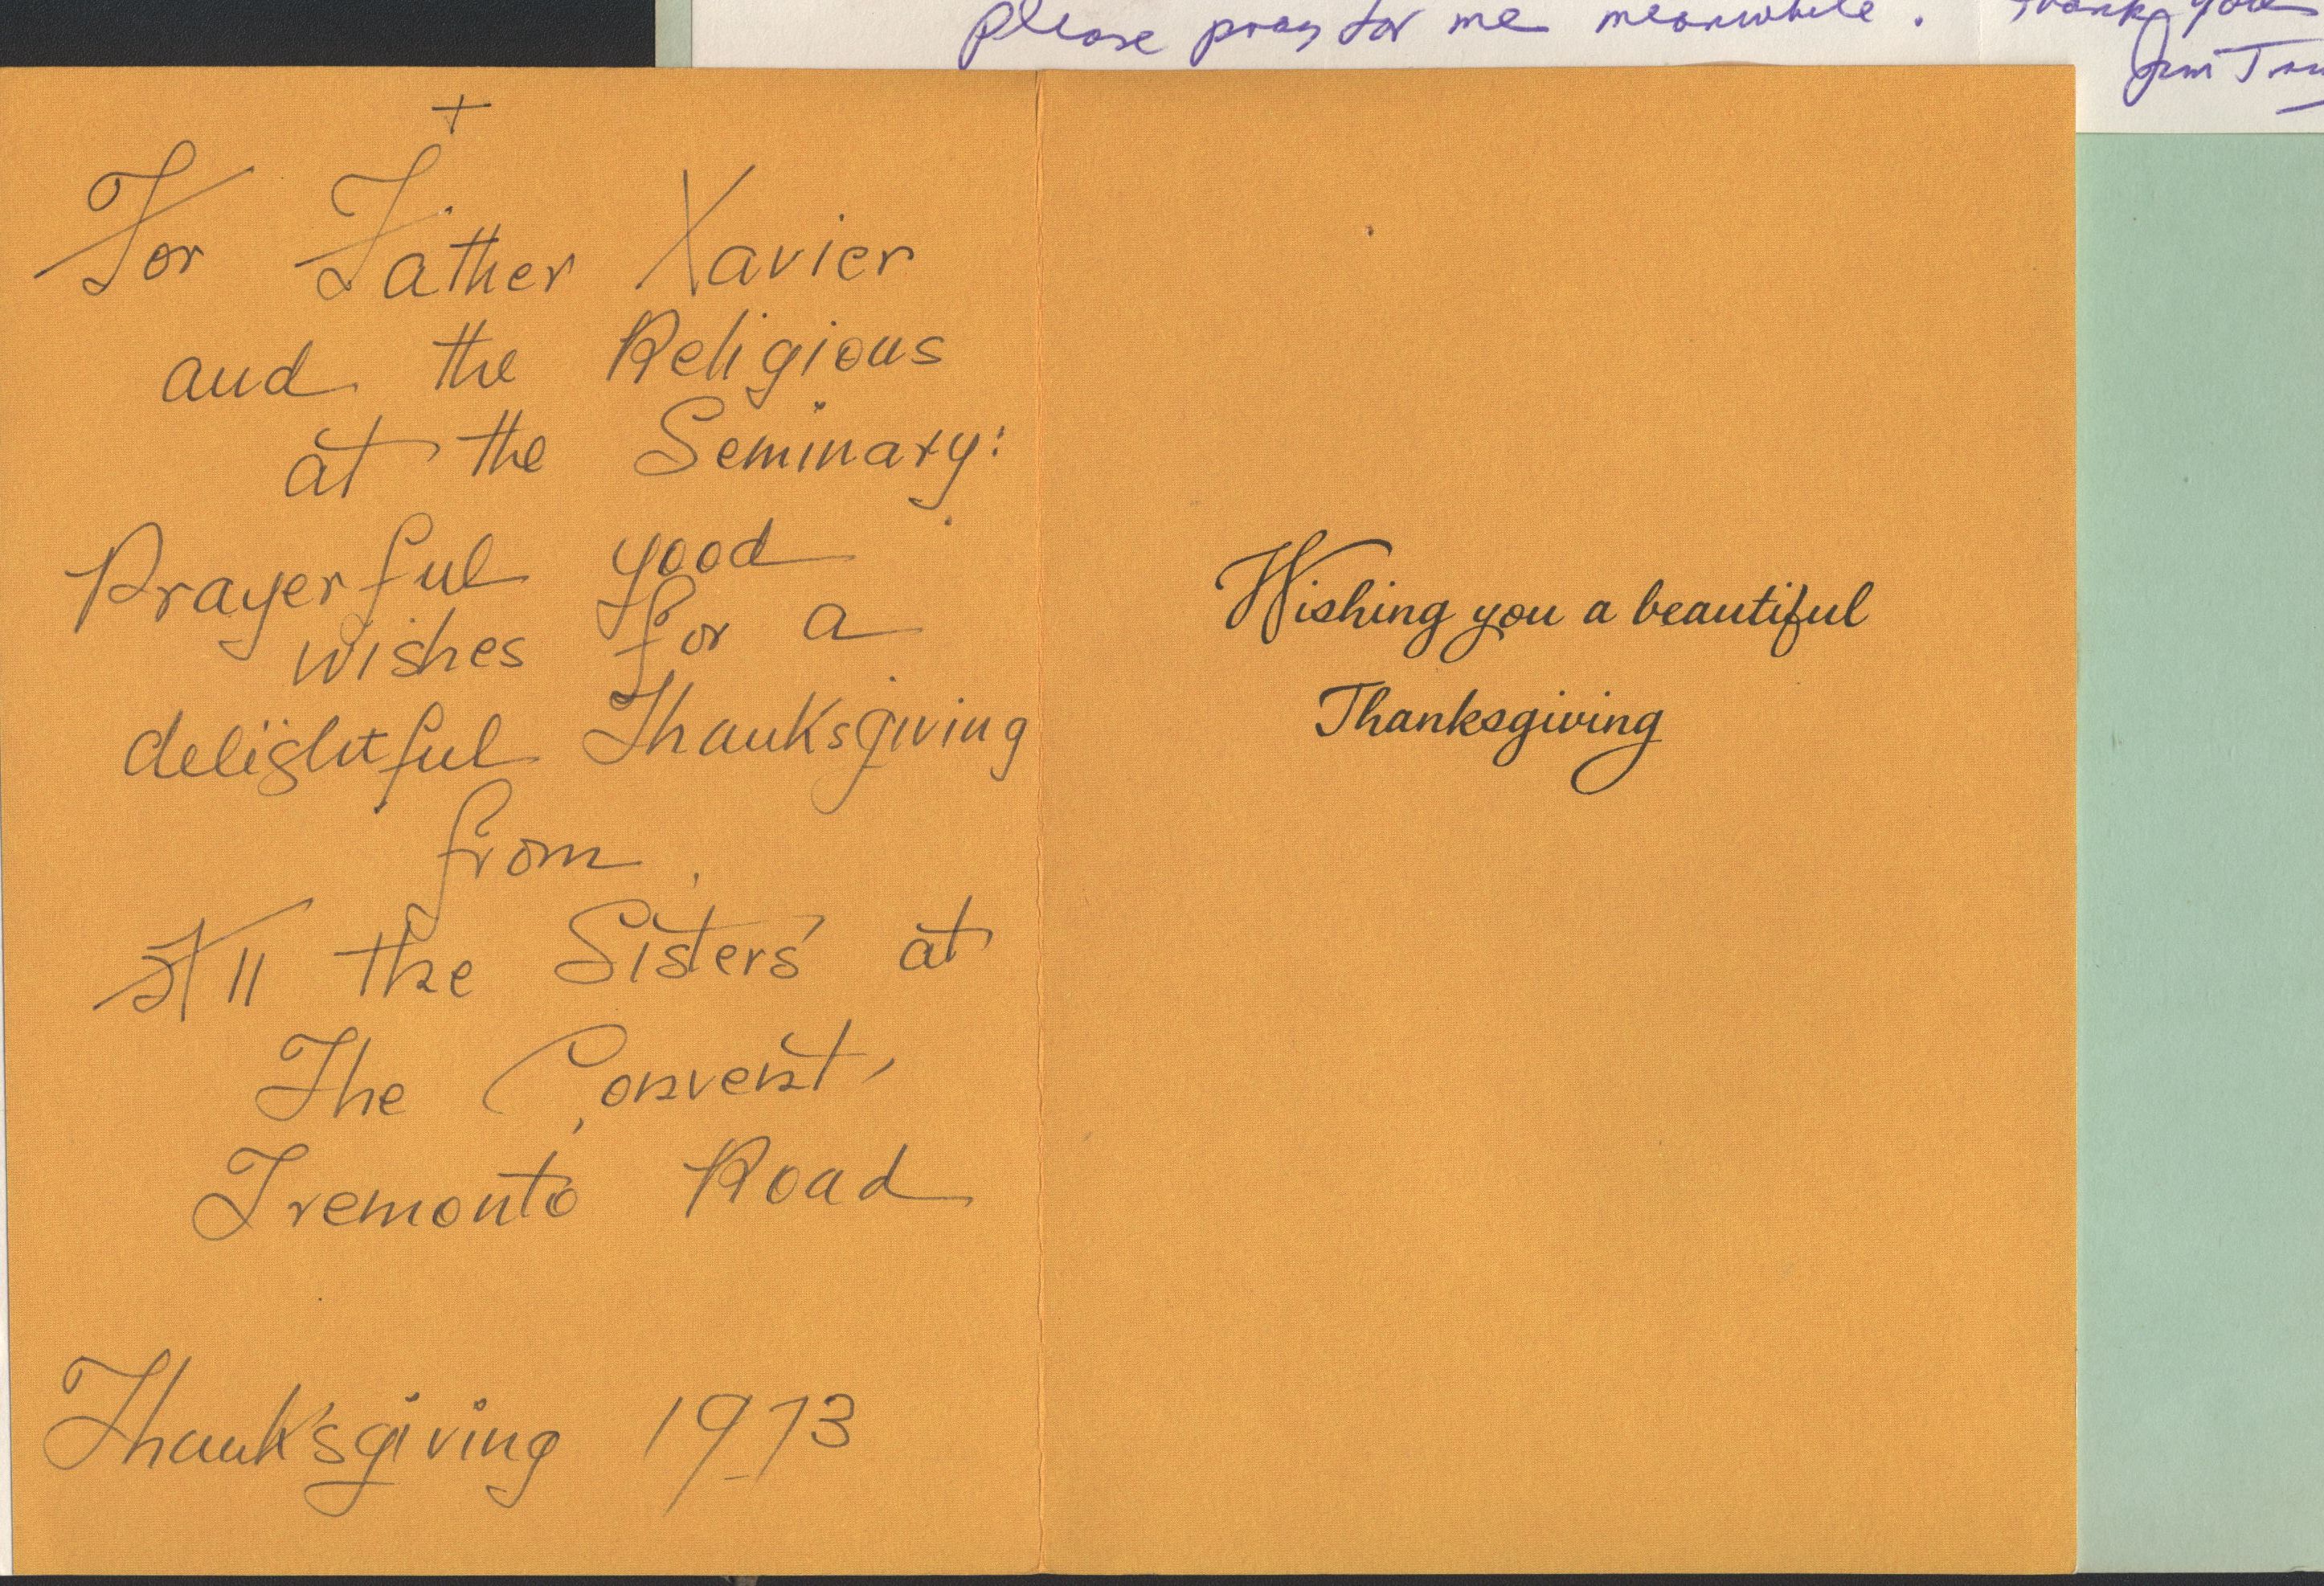 please pray for me meanwhile. Thank you
Jim
+
For Father Xavier
and the Religious
at the Seminary:
Prayerful good
wishes for a
delightful Thanksgiving
from
All the Sisters' at
The Convent,
Tremonto Road
Thanksgiving 1973
Wishing you a beautiful
Thanksgiving